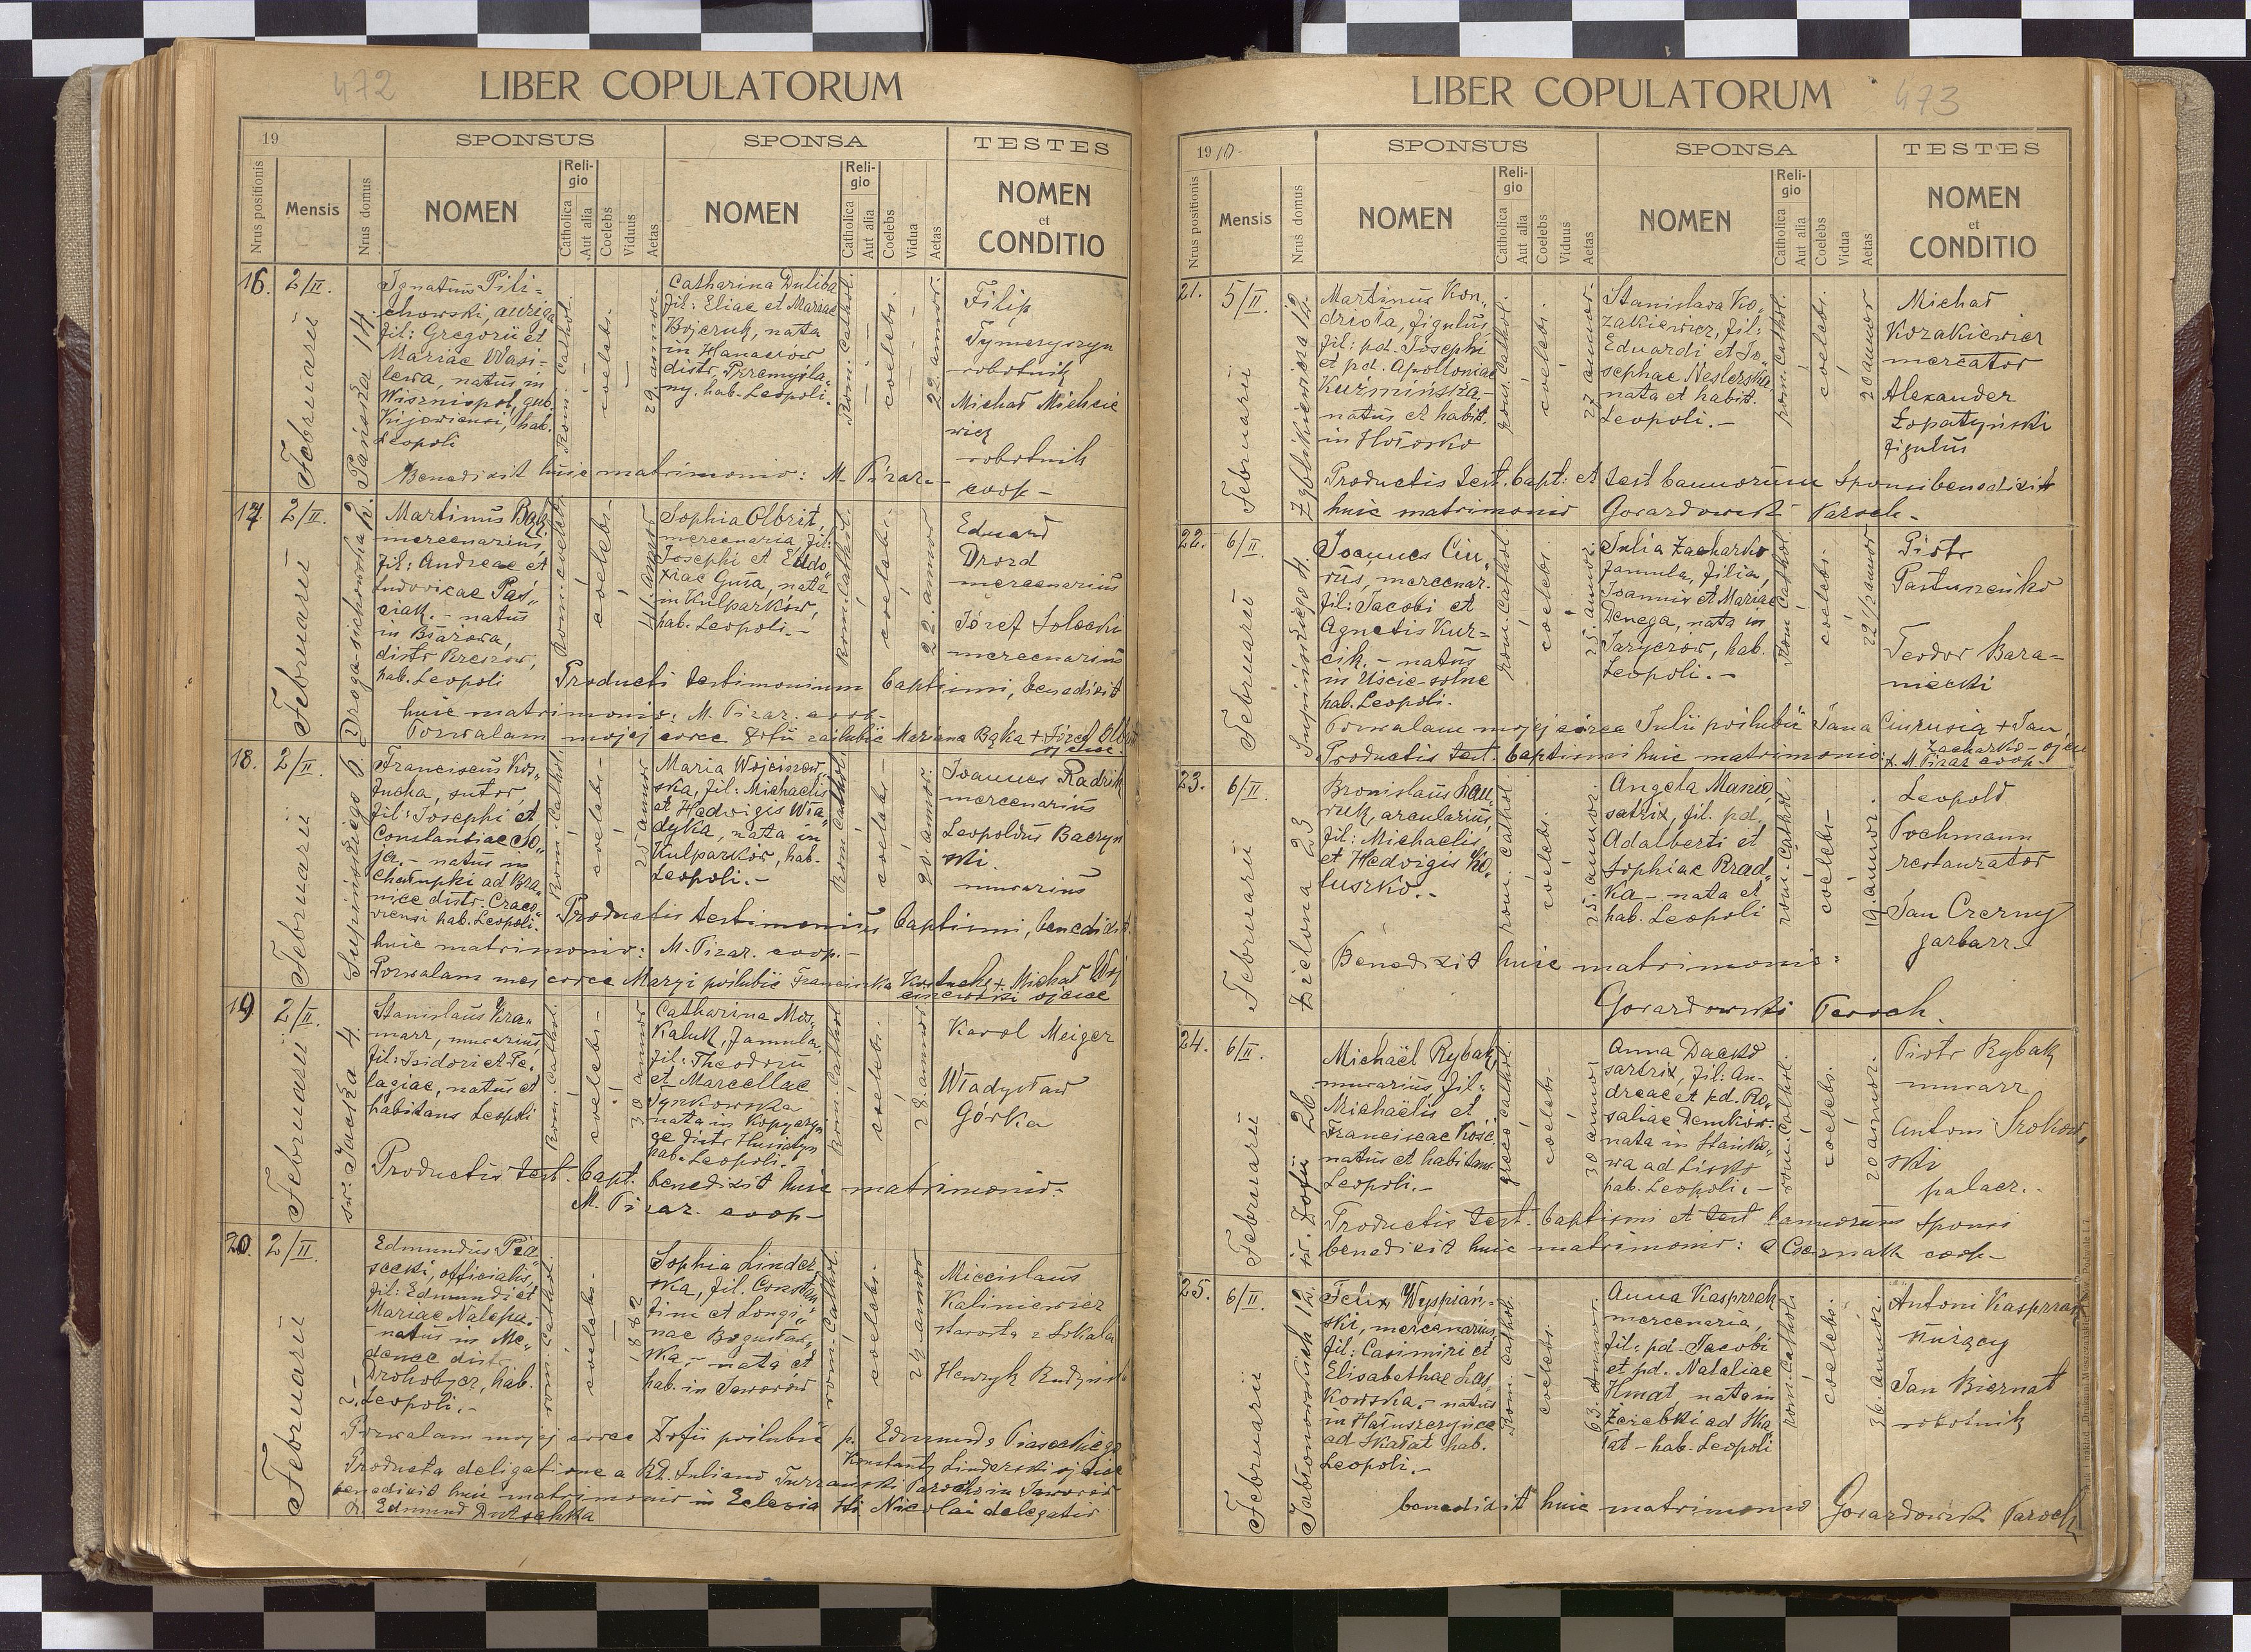 472
LIBER COPULATORUM
19
SPONSUS
SPONSA
TESTES
Nrus positionis
Mensis
Nrus domus
NOMEN
Reli-
gio
Catholica
Aut alia
Coelebs
Viduus
Aetas
NOMEN
Reli-
gio
Catholica
Aut alia
Coelebs
Vidua
Aetas
NOMEN
et
CONDITIO
16.
2/II.
Februarii
Pańska 14
Ignatius Pili-
chowski, auriga
fil: Gregorii et
Mariae Wasi-
lewa, natus in
Wiszniopol, gub.
Kijowiensi, hab.
Leopoli
Rom. Cathol.
coelebs.
29. annor.
Catharina Duliba
fil: Eliae et Mariae
Bojczuk, nata
in Hanaczów
distr. Przemyśla-
ny, hab. Leopoli.
Rom. Cathol.
coelebs.
22 annor.
Filip
Tymczyszyn
robotnik
Michał Michcie
wicz
robotnik
Benedixit huic matrimonio: M. Pizar.-
coop-
17.
2/II.
Februarii
Droga-sichowska
Martinus Bąk
mercenarius,
fil: Andreae et
Ludovicae Paś„
ciak. - natus
in Błażowa,
distr Rzeszów,
hab. Leopoli
coelebs-
Sophia Olbrit,
mercenaria fil:
Josephi et Eudo„
xiae Guła, nata
in Kulparków,
hab. Leopoli.-
Rom. Cathol.
coelebs.
22. annor
Eduard
Drozd
mercenarius
Józef Solecki
mercenarius
Producti testimonium baptismi, benedixit
huic matrimonio: M. Pizar. coop-
Pozwalam mojej corce Zofii zaślubić Mariana Bąka + Józef
ojciec
18.
2/II.
Februarii
Supińskiego 6
Franciscus Kos„
tucha, sutor,
fil: Josephi et
Constantiae So„
ja. - natus in
Chałupki ad Bra„
nice distr. Craco„
viensi hab. Leopoli.
Rom. Cathol.
coelebs-
25 annor
Maria Wojciszew„
ska, fil: Michaelis
et Hedvigis Wła„
dyka, nata in
Kulparków, hab.
Leopoli.-
Rom. Cathol
coelebs-
20. annor.
Joannes Radzik
mercenarius
Leopoldus Baczyn
ski.
murarius
Productis testimonius baptismi, benedixit
huic matrimonio: M. Pizar. coop.-
Pozwalam mej corce Maryi poślubić Franciszka Kostuchę + Michał Woj
ciszewski ojciec
19
2/II.
Februarii
św. Jacka 4.
Stanislaus Kra-
marz, murarius,
fil: Isidori et Pe„
lagiae, natus et
habitans Leopoli
Rom. Cathol.
coelebs-
30 annor
Catharina Mos„
kaluk, famula,
fil: Theodori
et Marcellae
Synkowska
nata in Kopyczyn
ce distr Husiatyn
hab. Leopoli.
Rom. Cathol
coelebs.
28. annor
Karol Meiger
Władysław
Górka
Productis test. bapt. benedixit huic matrimonio.-
M. Pizar. coop-
20.
2/II.
Februarii
Edmundus Pia
secki, officialis,
fil: Edmundi et
Mariae Nalepa.-
natus in Me„
denee distr.
Drohobycz, hab.
Leopoli.-
rom. Cathol.
coelebs-
1882
Sophia Linder
ska, fil. Constan
tini et Longi„
nae Bogusław„
ska.- nata et
hab. in Jaworów
rom. Cathol.
coelebs-
24 annor
Miecislaus
Kaliniewicz
starosta z Sokala
Henryk
Pozwalam mojej corce Zofii poślubić p. Edmunda Piaseckiego
Konstanty Linderski ojciec
Producta deligatione a Rd. Juliano Parocho in Jaworów
benedixit huic matrimonio in Eclesia Sti Nicolai delegatis
X. Edmund
473
LIBER COPULATORUM
1910.
SPONSUS
SPONSA
TESTES
Nrus positionis
Mensis
Nrus domus
NOMEN
Reli-
gio
Catholica
Aut alia
Coelebs
Viduus
Aetas
NOMEN
Reli-
gio
Catholica
Aut alia
Coelebs
Vidua
Aetas
NOMEN
et
CONDITIO
21.
5/II.
Februarii
Zyblikiewicza 12.
Martinus Kon„
driota, figulus,
fil: pd. Josephi
et pd. Apolloniae
Kuźmińska,-
natus et habit.
in Hołosko
rom. Cathol.
coelebs.
27 annor.
Stanislava Ko„
zakiewicz, fil:
Eduardi et Jo„
sephae Neslerska
nata et habit.
Leopoli. -
rom. Cathol.
coelebs.
20 annor
Michał
Kozakiewicz
mercator
Alexander
Łopatyński
figulus
Productis test. bapt: et test bannorum Sponsi benedixit
huic matrimonio Gorazdowski Paroch-
22.
6/II.
Februarii
Supińskiego 4.
Joannes Ciu„
ruś, mercenar.
fil: Jacobi et
Agnetis Kur=
cik. - natus
in Uście-solne
hab. Leopoli.
rom. Cathol
coelebs.
25. annor.
Julia Zacharko
famula, filia,
Joannis et Mariae
Denega, nata in
Jaryczów, hab.
Leopoli. -
Rom. Cathol.
coelebs.
22 1/2 annor
Piotr
Pastuszenko
Teodor Bara=
niecki
Pozwalam mojej córce Julii poślubić Jana Ciurusia + Jan
Zacharko - ojciec
Productis test. baptismi huic matrimonio: X. M. Pizar coop-
23.
6/II.
Februarii
Zielona 23
Bronislaus Hau„
ruk, arcularius,
fil: Michaelis
et Hedvigis Ko„
łuszko. -
rom. Cathol.
coelebs.
25. annor.
Angela Manio,
satrix, fil. pd.
Adalberti et
Sophiae Rrad„
ka - nata et
hab. Leopoli
rom. Cathol.
coelebs-
19. annor.
Leopold
Pochmann
restaurator
Jan Czerny
garbarz
Benedixit huic matrimonio:
Gorazdowski Paroch.
24.
6/II.
Februarii
św. Zofii 26.
Michaël Rybak,
murarius, fil:
Michaëlis et
Franciscae Kość
natus et habitans
Leopoli.-
greco Cathol.
coelebs-
30 annor
Anna Dacko
sartrix, fil: An-
dreae et pd. Ro„
saliae Demków.
nata in Stańko„
wa ad Lisko
hab. Leopoli. -
rom. Cathol.
coelebs.
20 annor.
Piotr Rybak
murarz
Antoni Srokow„
ski
palacz.-
Productis test. baptismi et test bannorum Sponsi
benedixit huic matrimonio: coop-
25.
6/II.
Februarii
Jabłonowskich 12.
Felix Wyspiań,-
ski, mercenarius,
fil: Casimiri et
Elisabethae Las„
kowska.- natus
in Hałuszczyńce
ad Skałat hab.
Leopoli.-
Rom. Cathol.
coelebs.
63. annor.
Anna Kasprzak
mercenaria,
fil: pd. Jacobi
et pd. Nataliae
Hnat nata in
Żerebki ad Ska
łat - hab. Leopoli
rom. Cathol.
coelebs.
36. annor.
Antoni Kasprzak
Jan Biernat
robotnik
benedixit huic matrimonio Gorazdowski Paroch